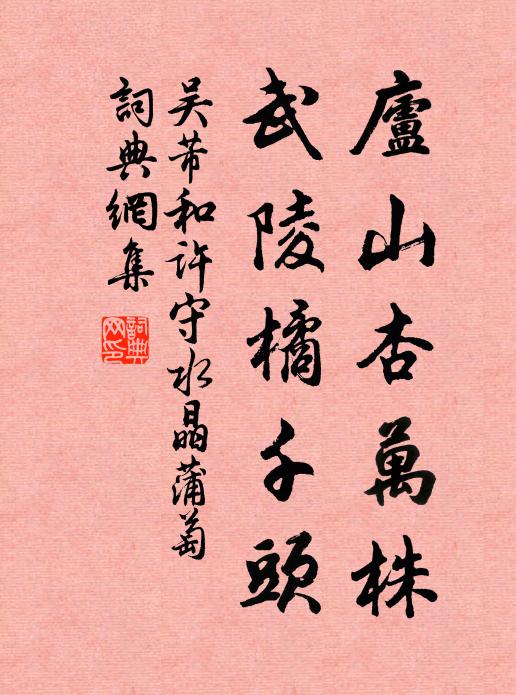 廬山杏萬株
武陵橘千頭
吴芾和許守水晶蒲萄
詞典網集
詞典
网印